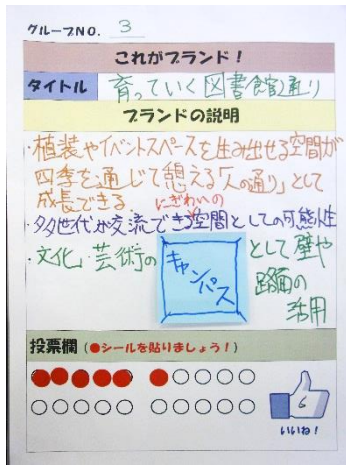 グループNO. 3
これがブランド!
タイトル 育っていく図書館通り
ブランドの説明
・植装やイベントスペースを生み出せる空間が
四季を通じて憩える「人の通り」として
成長できる。
にぎわいの
・多世代が交流できる空間としての可能性
・文化・芸術の キャンパス として壁や
路面の
活用
投票欄(●シールを貼りましょう!)
6
いいね!